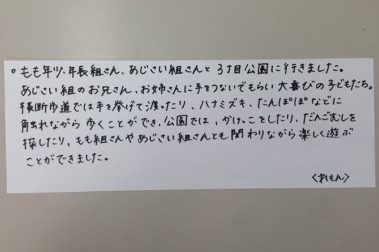 ○もも年少、年長組さん、あじさい組さんと3丁目公園に行きました。
あじさい組のお兄さん、お姉さんに手をつないでもらい大喜びの子どもたち。
横断歩道では手を挙げて渡ったり、ハナミズキ、たんぽぽなどに
触れながら歩くことができ、公園では、かけっこをしたり、だんごむしを
探したり、もも組さんやあじさい組さんとも関わりながら楽しく遊ぶ
ことができました。